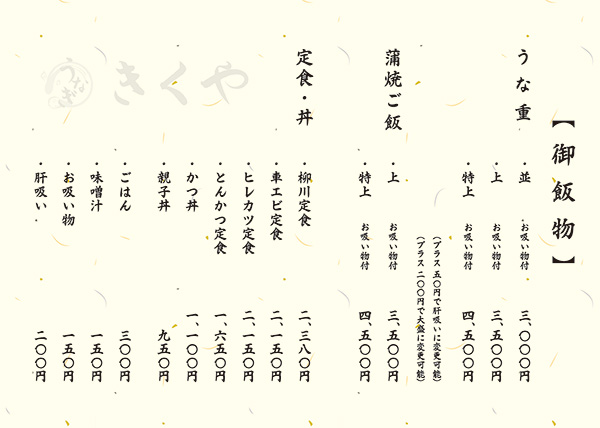 【御飯物】
うな重
・並 お吸い物付 三、〇〇〇円
・上 お吸い物付 三、五〇〇円
・特上 お吸い物付 四、五〇〇円
(プラス 五〇円で肝吸いに変更可能)
(プラス 二〇〇円で大盛に変更可能)
蒲焼ご飯
・上 お吸い物付 三、五〇〇円
・特上 お吸い物付 四、五〇〇円
定食・丼
・柳川定食 二、三八〇円
・車エビ定食 二、一五〇円
・ヒレカツ定食 二、一五〇円
・とんかつ定食 一、六五〇円
・かつ丼 一、一〇〇円
・親子丼 九五〇円
・ごはん 三〇〇円
・味噌汁 一五〇円
・お吸い物 一五〇円
・肝吸い 二〇〇円
きくや